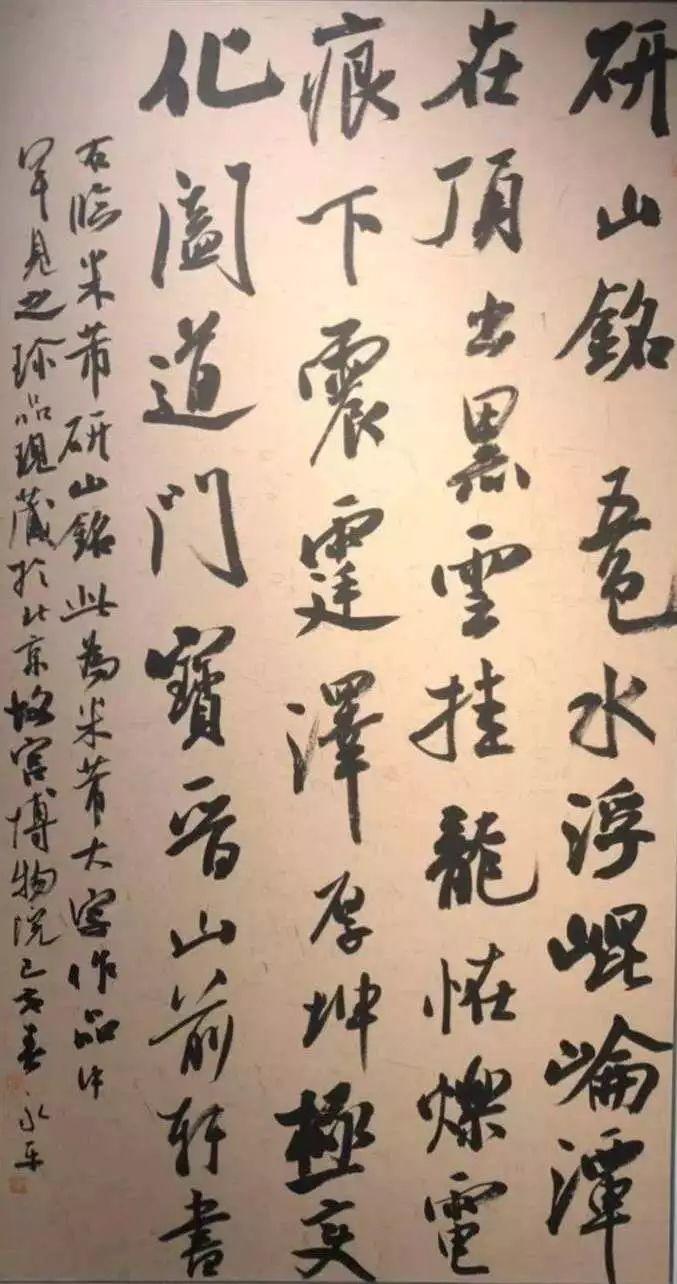 研山銘 五色水浮崐崘潭
在頂出黑雲挂龍恠爍電
痕下震霆澤厚坤極变
化闔道門寶晋山前軒書
右臨米芾研山銘此為米芾大字作品中
罕見之珍品現藏於北京故宮博物院己亥春永乐